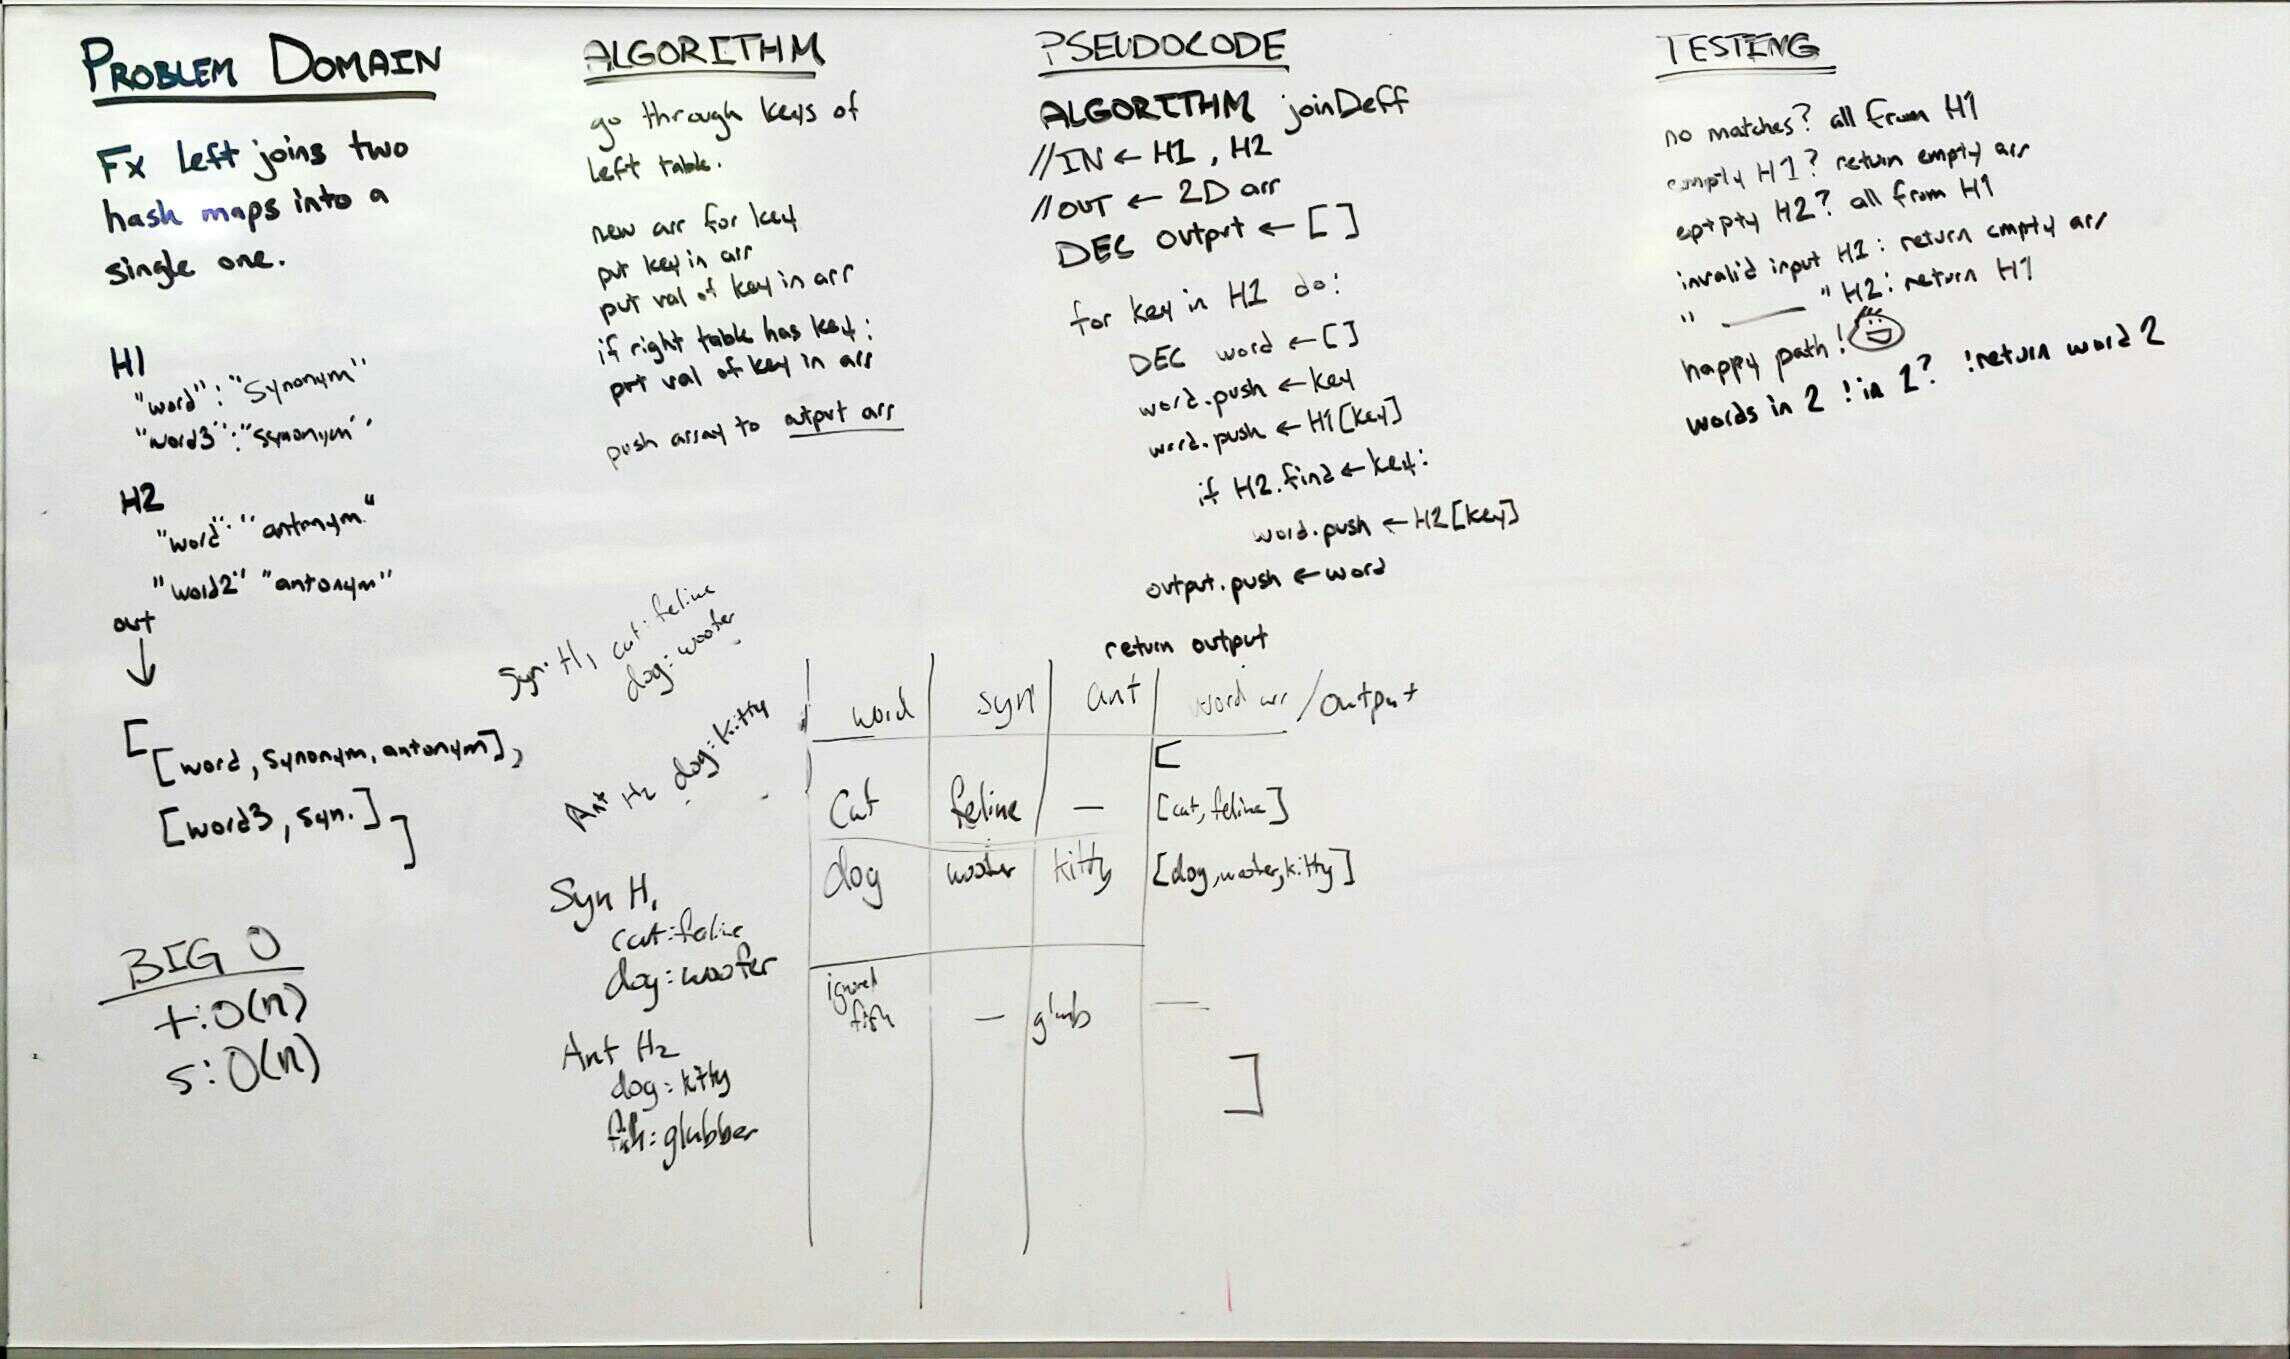 PROBLEM DOMAIN
Fx left joins two
hash maps into a
single one.
H1
"word": "Synonym"
"word3": "synonym"
H2
"word": "antonym"
"word2" "antonym"
out
[
[word, synonym, antonym],
[word3, syn.]
]
BIG O
t: O(n)
s: O(n)
ALGORITHM
go through keys of
left table.
new arr for key
put key in arr
put val of key in arr
if right table has key:
put val of key in arr
push array to output arr
Syn. H1 cat: feline
dog: woofer
Ant H2 dog: kitty
Syn H1
cat: feline
dog: woofer
Ant H2
dog: kitty
fish: glubber
PSEUDOCODE
ALGORITHM joinDeff
//IN ← H1, H2
//OUT ← 2D arr
DEC output ← []
for key in H1 do:
DEC word ← []
word.push ← key
word.push ← H1[key]
if H2.find ← key:
word.push ← H2[key]
output.push ← word
return output
word syn ant word arr / output
[
cat feline — [cat, feline]
dog woofer kitty [dog, woofer, kitty]
ignored
fish — glub —
]
TESTING
no matches? all from H1
empty H1? return empty arr
eptpty H2? all from H1
invalid input H1: return empty arr
" — " H2: return H1
happy path!
words in 2 !in 1? !return word 2